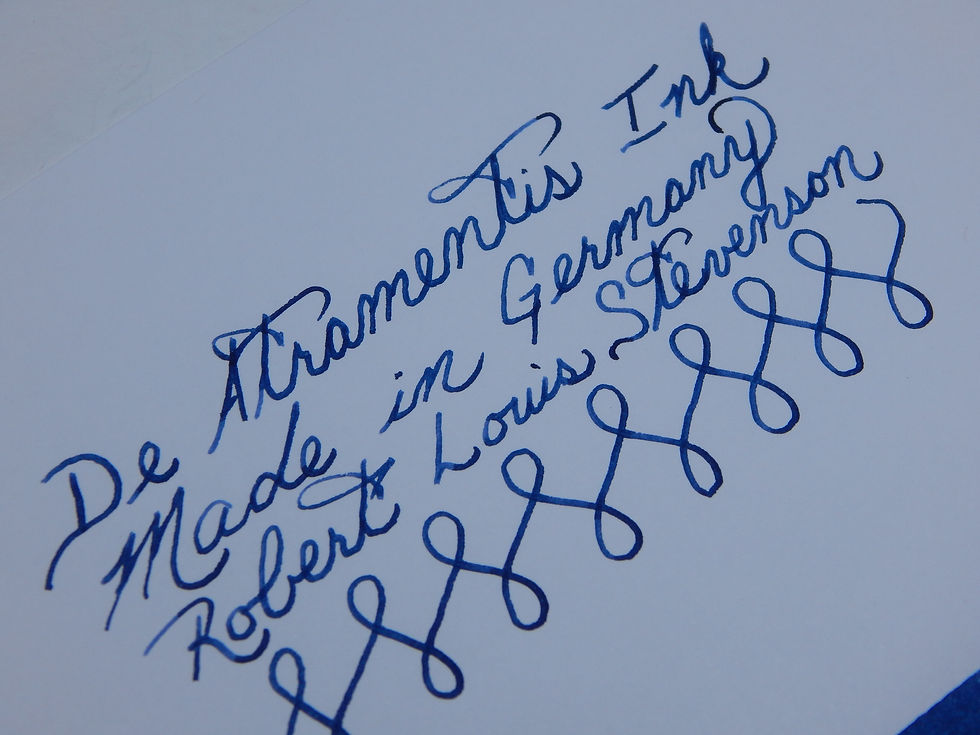 De Atramentis Ink
Made in Germany
Robert Louis Stevenson